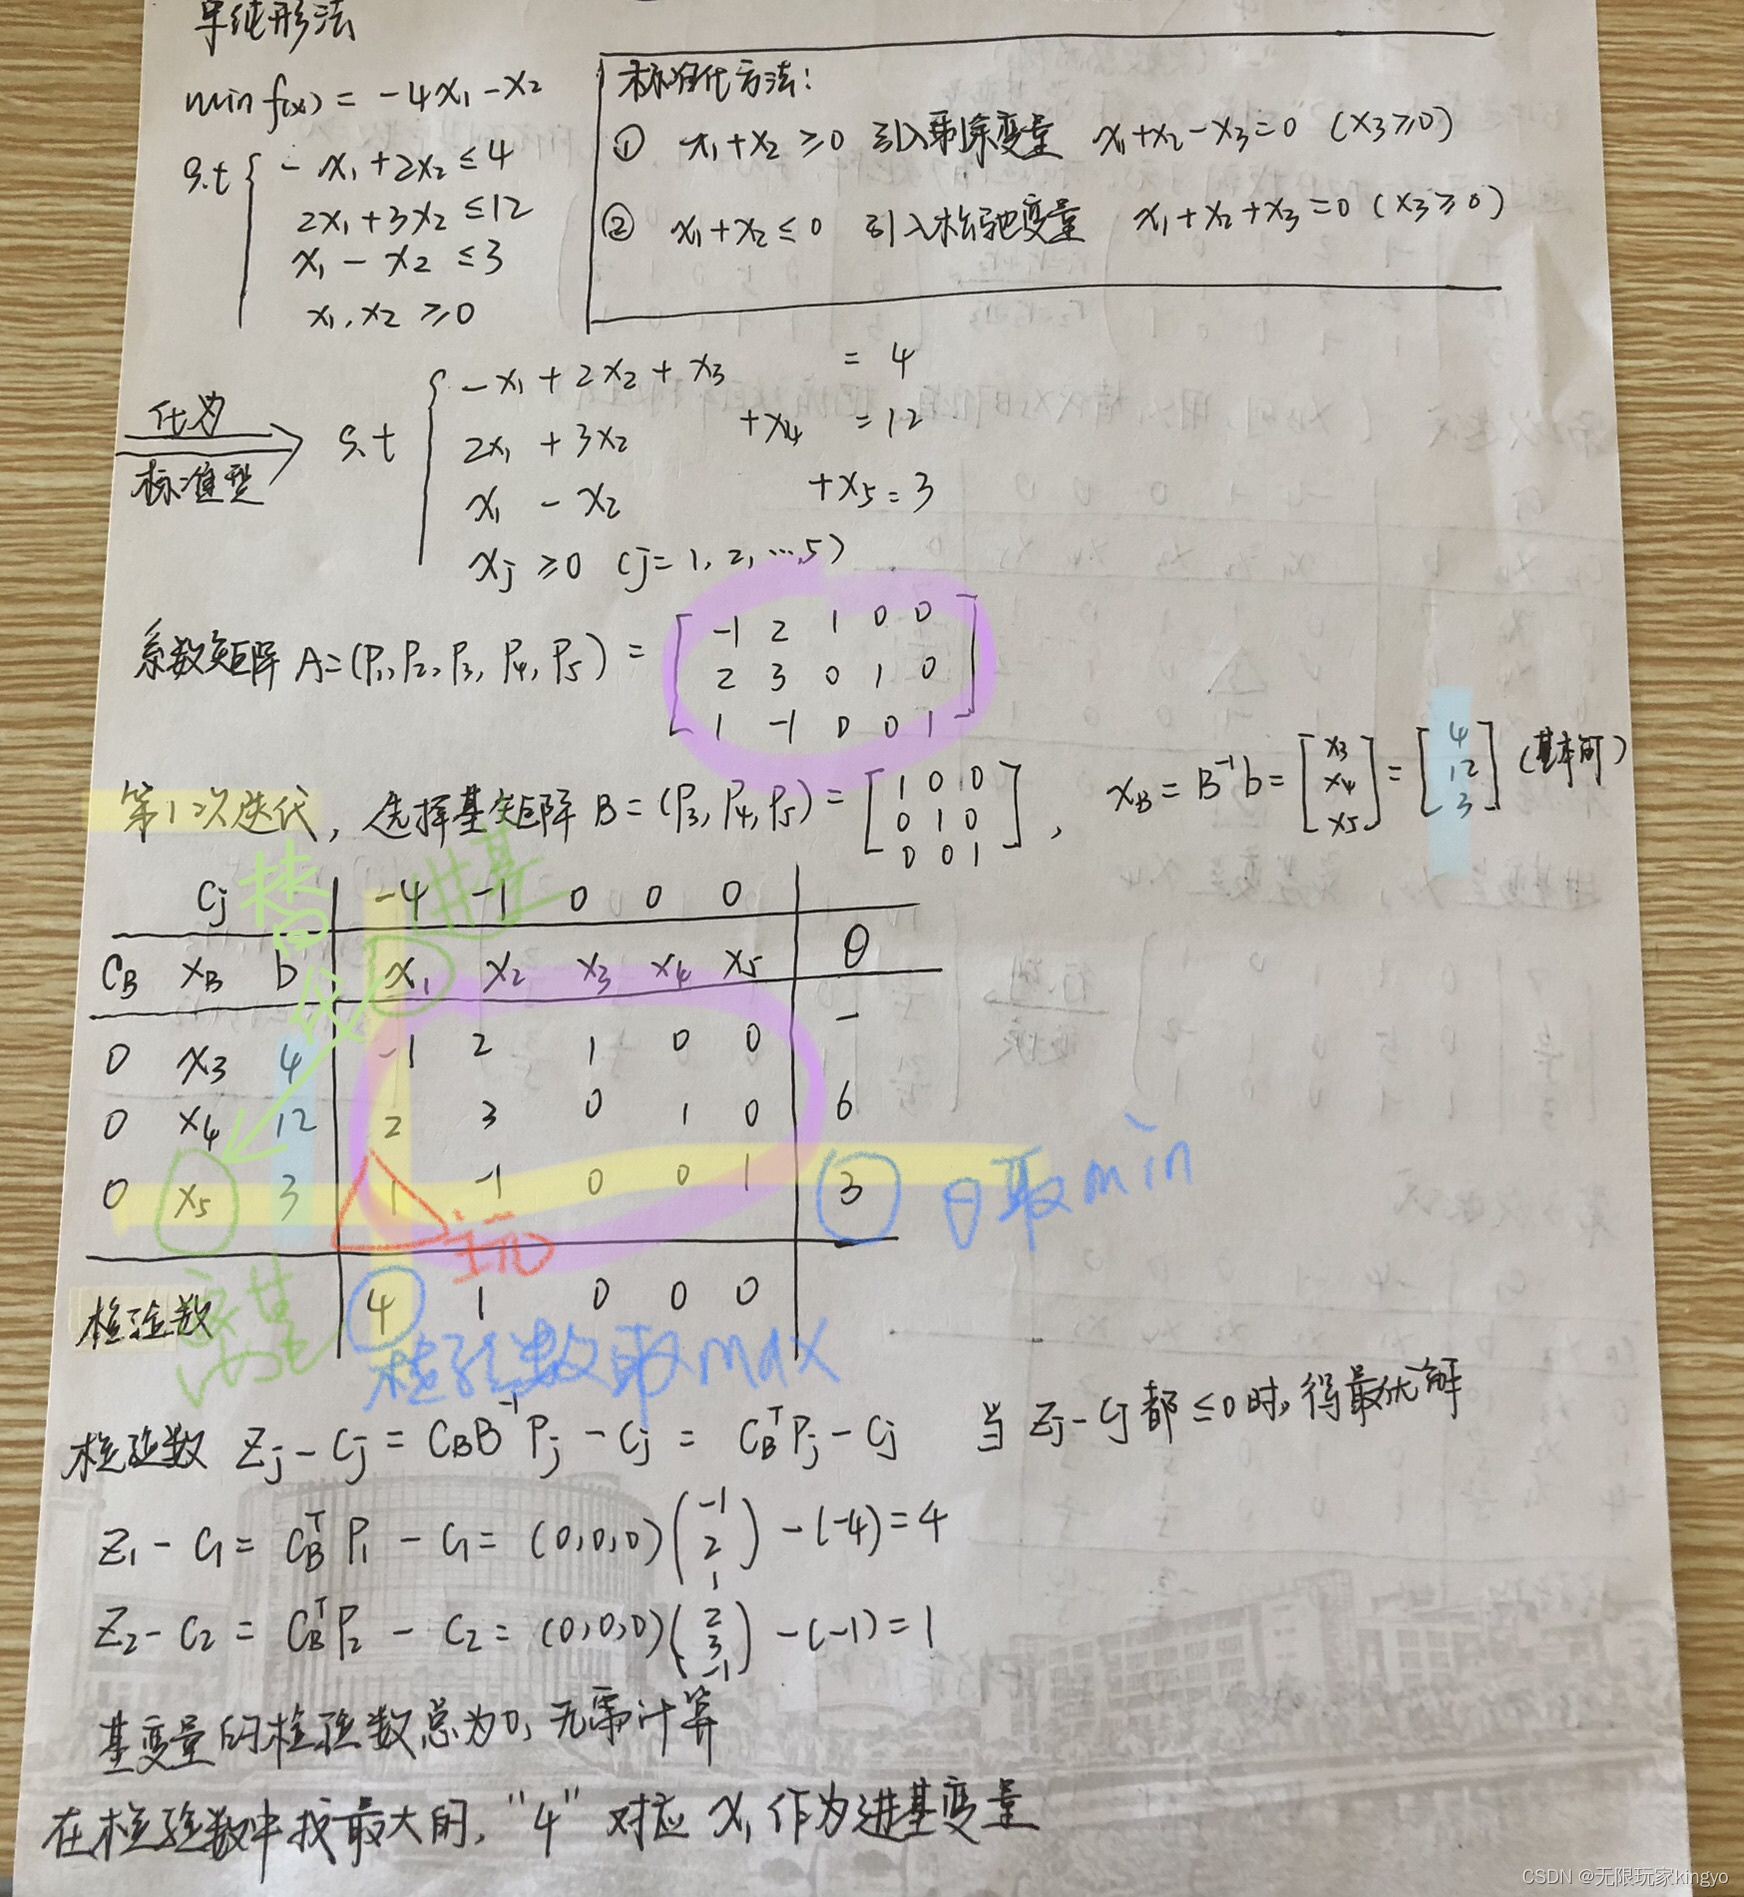 单纯形法
min f(x) = -4x₁ - x₂
s.t { -x₁ + 2x₂ ≤ 4
2x₁ + 3x₂ ≤ 12
x₁ - x₂ ≤ 3
x₁, x₂ ≥ 0
标准化方法:
① x₁ + x₂ ≥ 0 引入剩余变量 x₁ + x₂ - x₃ = 0 (x₃ ≥ 0)
② x₁ + x₂ ≤ 0 引入松弛变量 x₁ + x₂ + x₃ = 0 (x₃ ≥ 0)
化为
标准型
s.t { -x₁ + 2x₂ + x₃ = 4
2x₁ + 3x₂ + x₄ = 12
x₁ - x₂ + x₅ = 3
xⱼ ≥ 0 (j = 1, 2, ..., 5)
系数矩阵 A = (P₁, P₂, P₃, P₄, P₅) = [ -1 2 1 0 0
2 3 0 1 0
1 -1 0 0 1 ]
第1次迭代, 选择基矩阵 B = (P₃, P₄, P₅) = [ 1 0 0
0 1 0
0 0 1 ] , x_B = B⁻¹b = [ x₃ x₄ x₅ ] = [ 4 12 3 ] (基本可)
替代 进基
Cj -4 -1 0 0 0
C_B X_B b x₁ x₂ x₃ x₄ x₅ θ
0 x₃ 4 -1 2 1 0 0 -
0 x₄ 12 2 3 0 1 0 6
0 x₅ 3 1 -1 0 0 1 3 θ取min
主元
检验数 4 1 0 0 0
检验数取max
检验数 Zj - Cj = C_B B⁻¹ Pj - Cj = C_Bᵀ Pj - Cj 当 Zj - Cj 都 ≤ 0 时, 得最优解
Z₁ - C₁ = C_Bᵀ P₁ - C₁ = (0,0,0) ( -1 2 1 ) - (-4) = 4
Z₂ - C₂ = C_Bᵀ P₂ - C₂ = (0,0,0) ( 2 3 -1 ) - (-1) = 1
基变量的检验数总为0, 无需计算
在检验数中找最大的, "4" 对应 x₁ 作为进基变量
CSDN @无限玩家kingyo